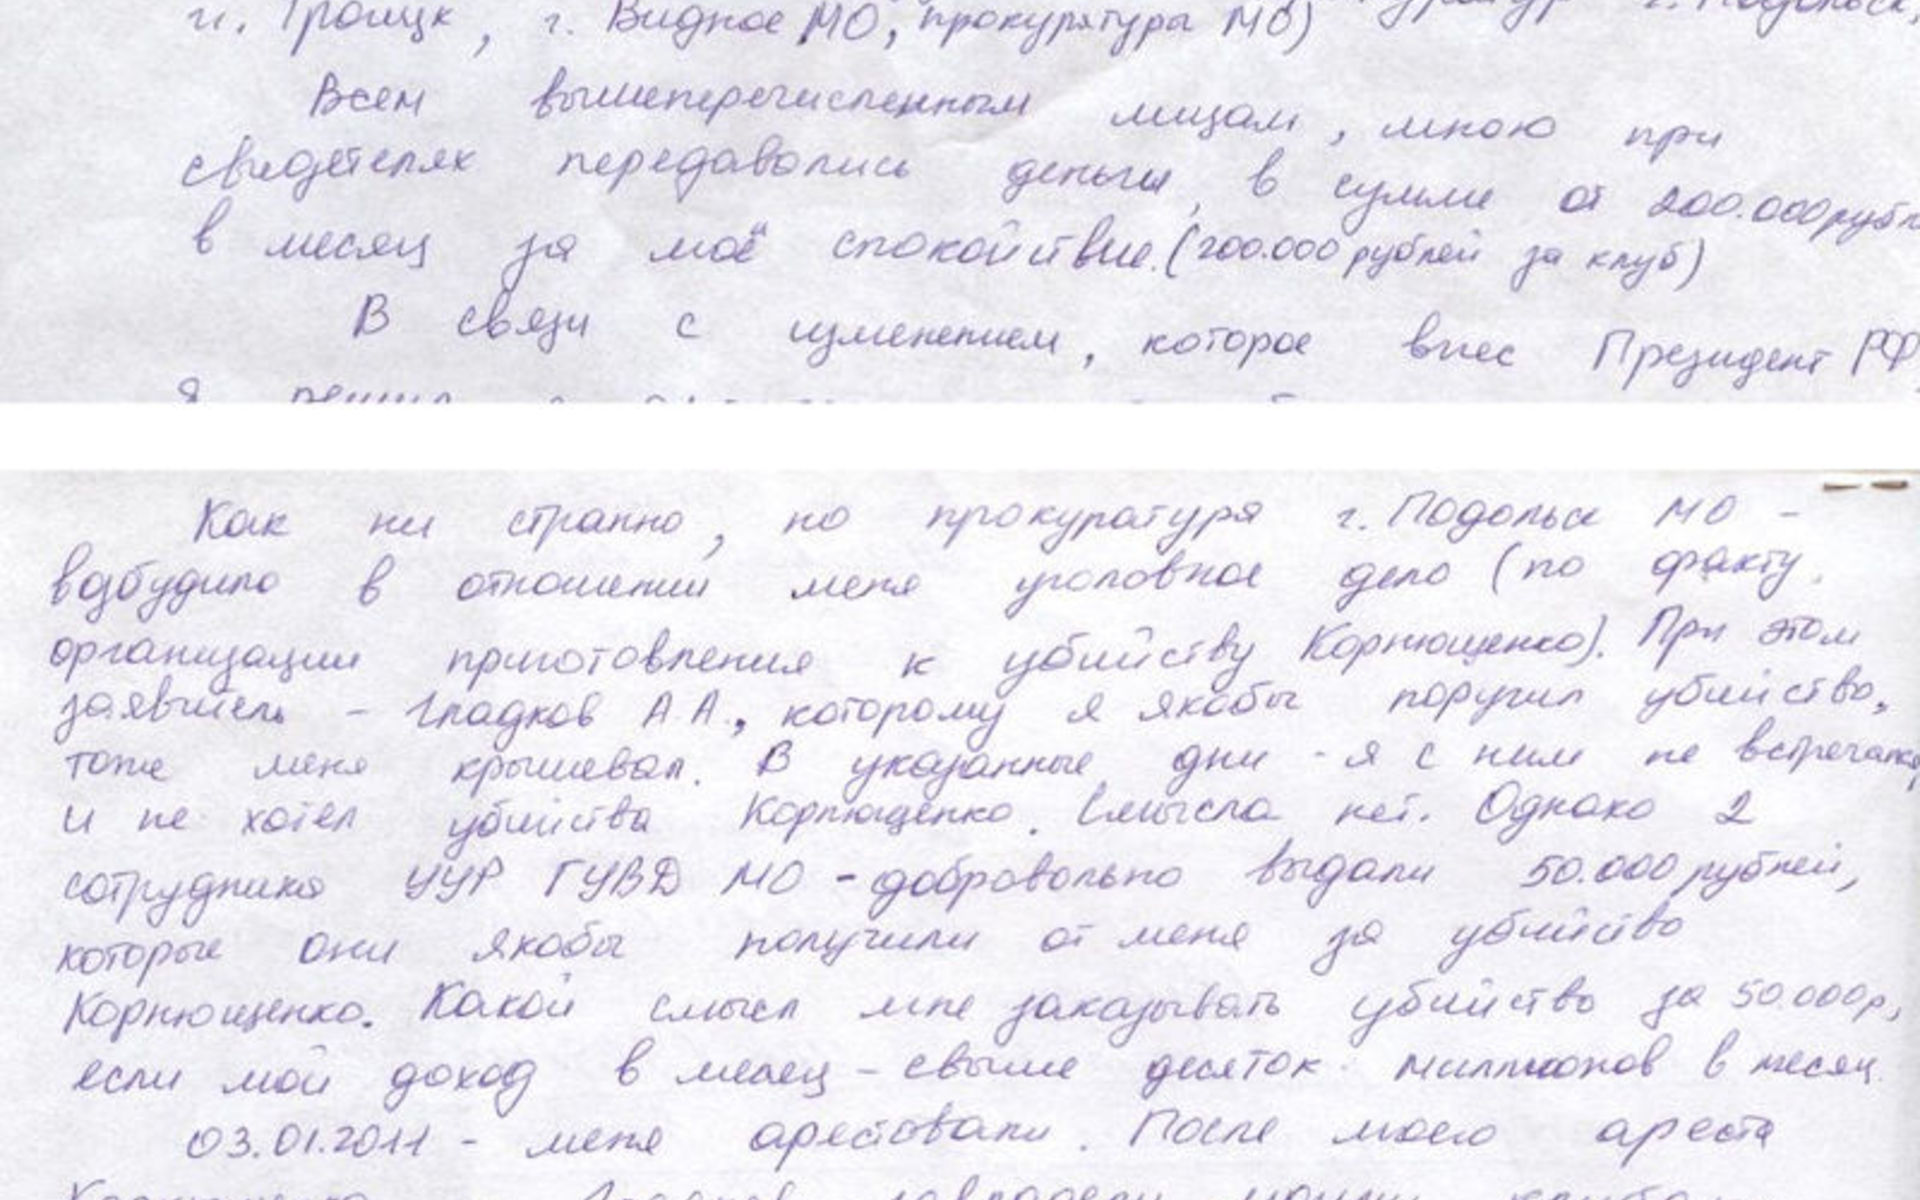 г. Троицк, г. Видное МО, прокуратуры МО)
г. Подольск,
Всем вышеперечисленным лицам, мною при
свидетелях передавались деньги, в сумме от 200.000 рубл
в месяц за моё спокойствие. (200.000 рублей за клуб)
В связи с изменением, которое внес Президент РФ,
я решил
Как ни странно, но прокуратура г. Подольск МО -
возбудило в отношении меня уголовное дело (по факту
организации приготовления к убийству Корнющенко). При этом
заявитель - Гладков А.А., которому я якобы поручил убийство,
тоже меня крышевал. В указанные дни - я с ним не встречался,
и не хотел убийства Корнющенко. Смысла нет. Однако 2
сотрудника УУР ГУВД МО - добровольно выдали 50.000 рублей,
которые они якобы получили от меня за убийство
Корнющенко. Какой смысл мне заказывать убийство за 50.000р,
если мой доход в месец - свыше десяток миллионов в месяц.
03.01.2011 - меня арестовали. После моего ареста